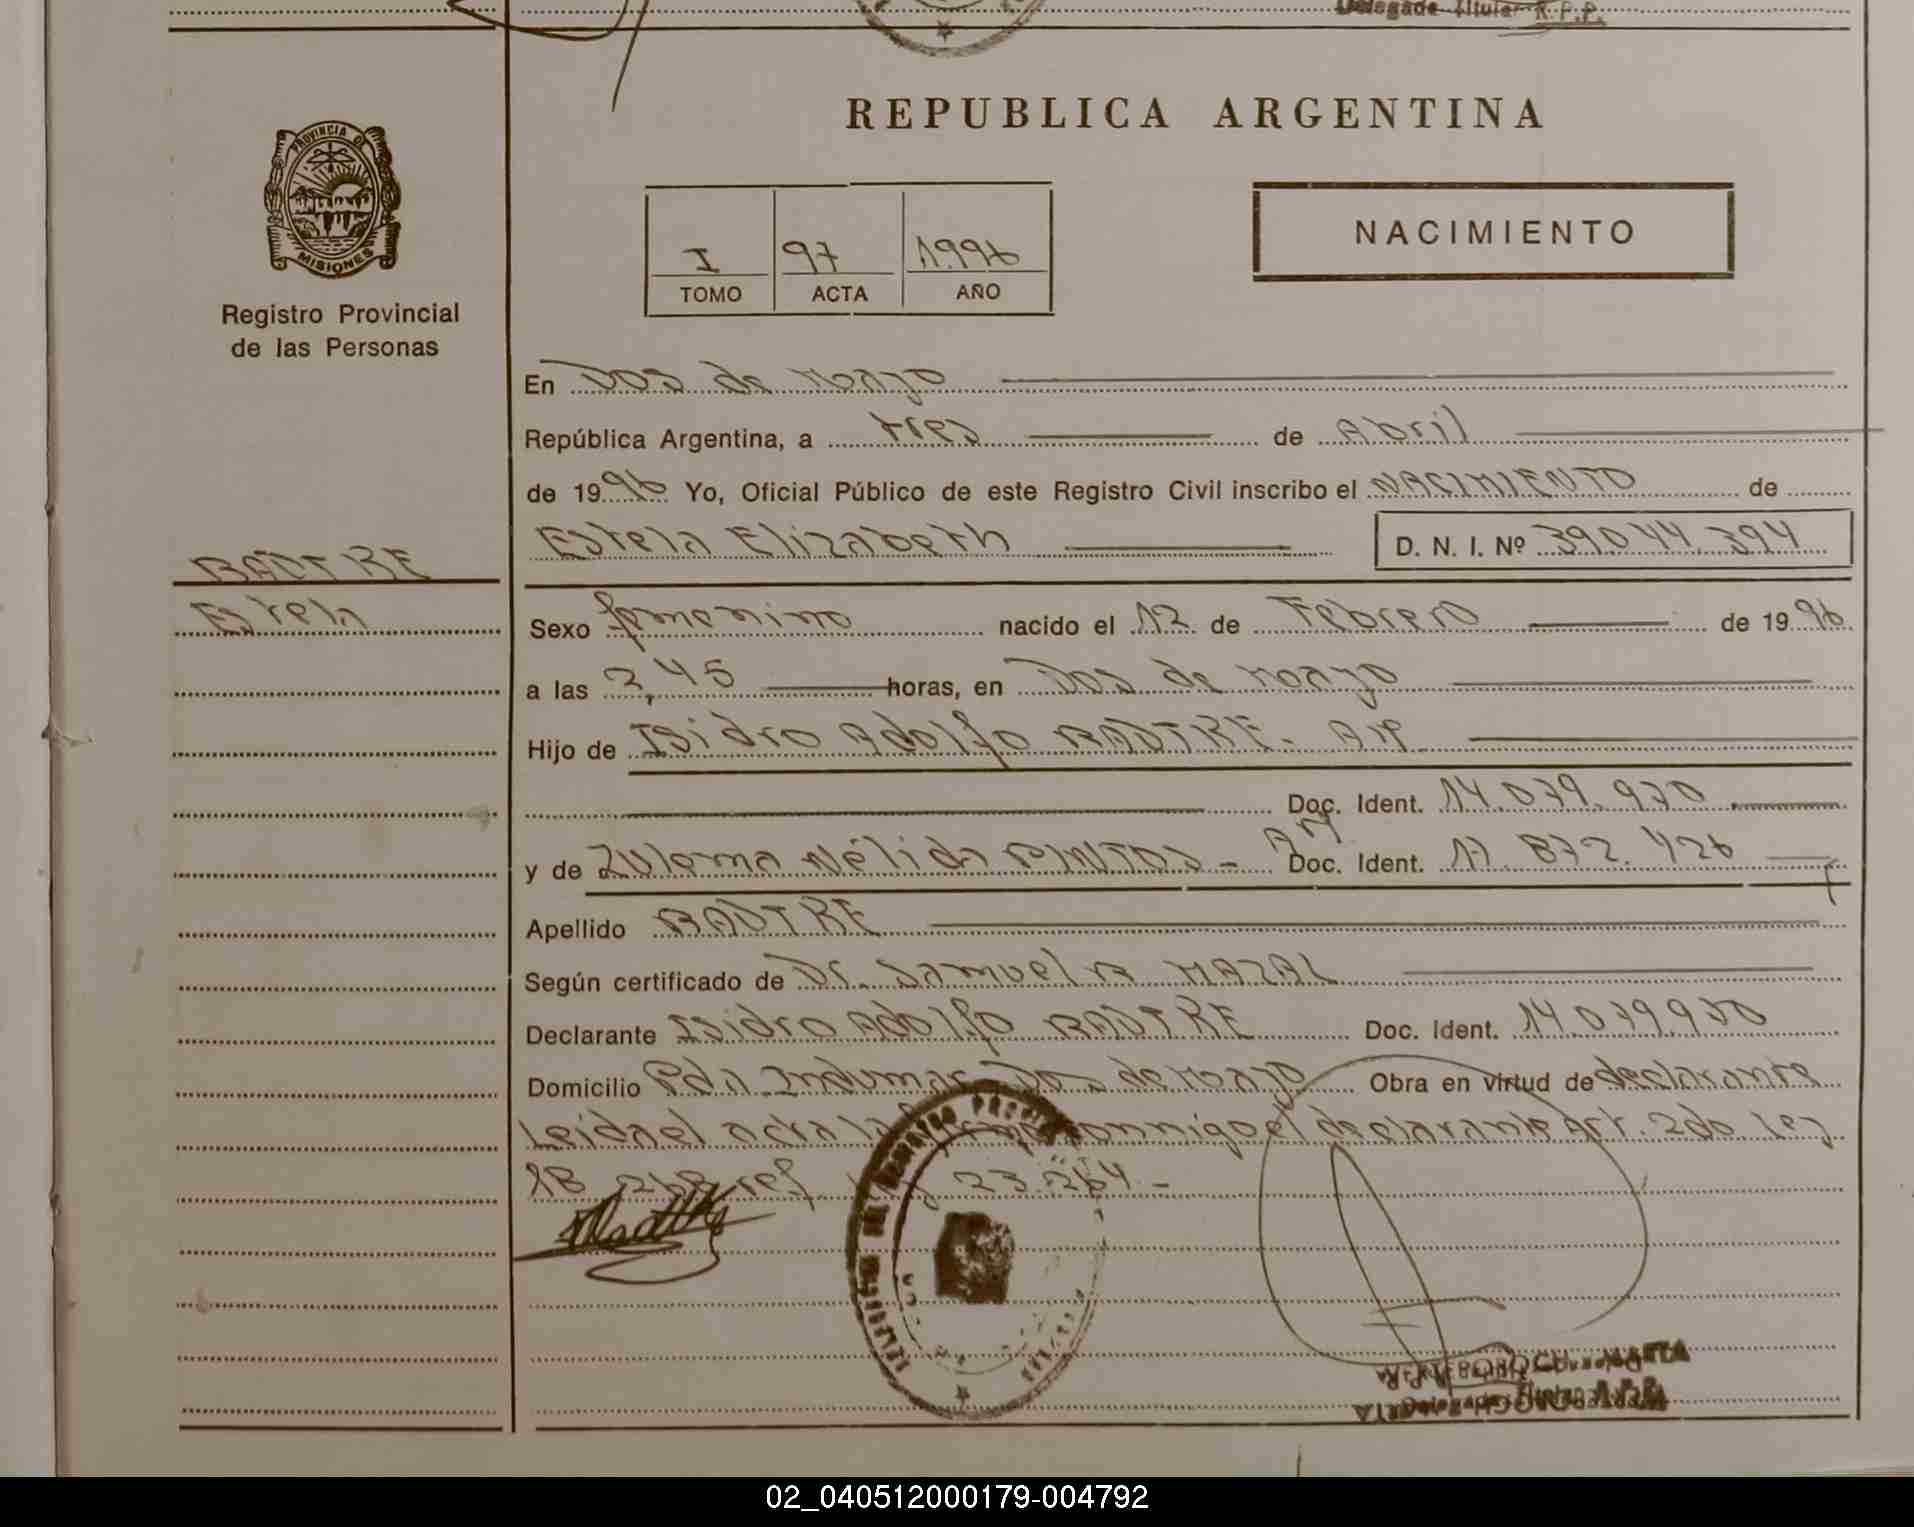 Delegada Titular R.P.P.
REPUBLICA ARGENTINA
PROVINCIA DE
MISIONES
Registro Provincial
de las Personas
I 97 1996
TOMO ACTA AÑO
NACIMIENTO
En Dos de Mayo
República Argentina, a tres de Abril
de 1996 Yo, Oficial Público de este Registro Civil inscribo el NACIMIENTO de
Estela Elizabeth D. N. I. Nº 39.044.394
Estela
Sexo femenino nacido el 12 de Febrero de 1996
a las 2,45 horas, en Dos de Mayo
Hijo de Isidro Adolfo
Doc. Ident. 14.079.970
y de Zulema Nélida PINTOS - Doc. Ident. 17.872.426
Apellido
Según certificado de Dr. Samuel MAZAL
Declarante Isidro Adolfo Doc. Ident. 14.079.970
Domicilio Pdil Indumar Dos de Mayo Obra en virtud de declarante
Leida el acta la conmigo el declarante Art. 2do. Ley
18 268 ref Ley 23.264 -
02_040512000179-004792